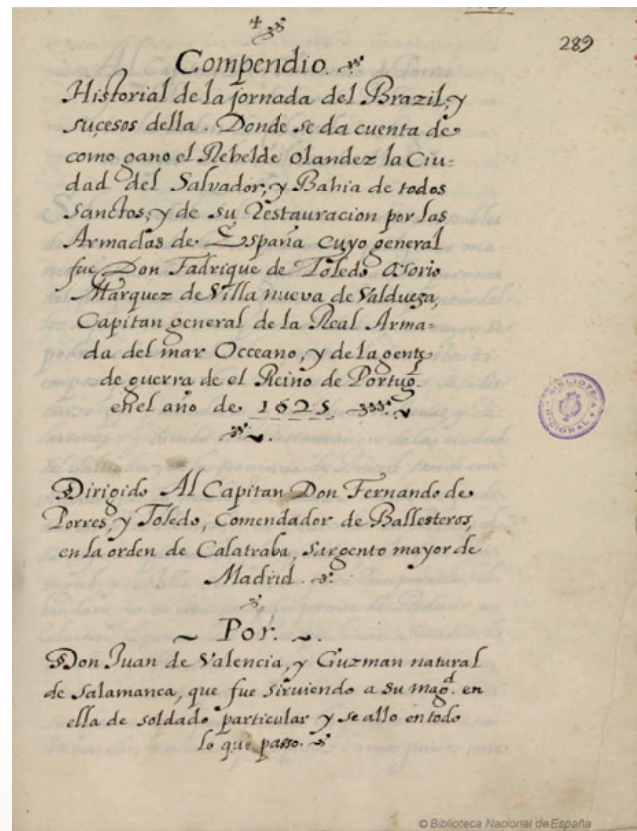 289
Compendio.
Historial de la jornada del Brazil, y
suçesos della. Donde se da cuenta de
como gano el Rebelde olandez la Ciu-
dad del Salvador, y Bahia de todos
Sanctos, y de su Restauracion por las
Armadas de España cuyo general
fue Don Fadrique de Toledo osorio
Marquez de Villa nueva de Valdueza,
Capitan general de la Real Arma-
da del mar Occeano, y de la gente
de guerra de el Reino de Portugl.
en el año de 1625
Dirigido Al Capitan Don Fernando de
Porres, y Toledo, Comendador de Ballesteros,
en la orden de Calatraba, Sargento mayor de
Madrid.
Por.
Don Juan de Valencia, y Guzman natural
de Salamanca, que fue siruiendo a su magd. en
ella de soldado particular y se allo en todo
lo que passo.
BIBLIOTECA NACIONAL
© Biblioteca Nacional de España